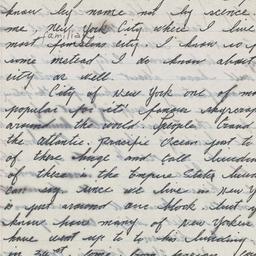 know by name not by science
me. New York City where I live
most famous city. I know
familiar
some instead I do know about
city or well.
City of New York one of mo
popular for it's famous skyscrap
around the world people
the atlantic, pacific ocean just to
of these huge and tall building
of these is the Empire States buildi
can say, since we live in New Y
is just around one block, but
know how many of New Yorker
have went up to to his building